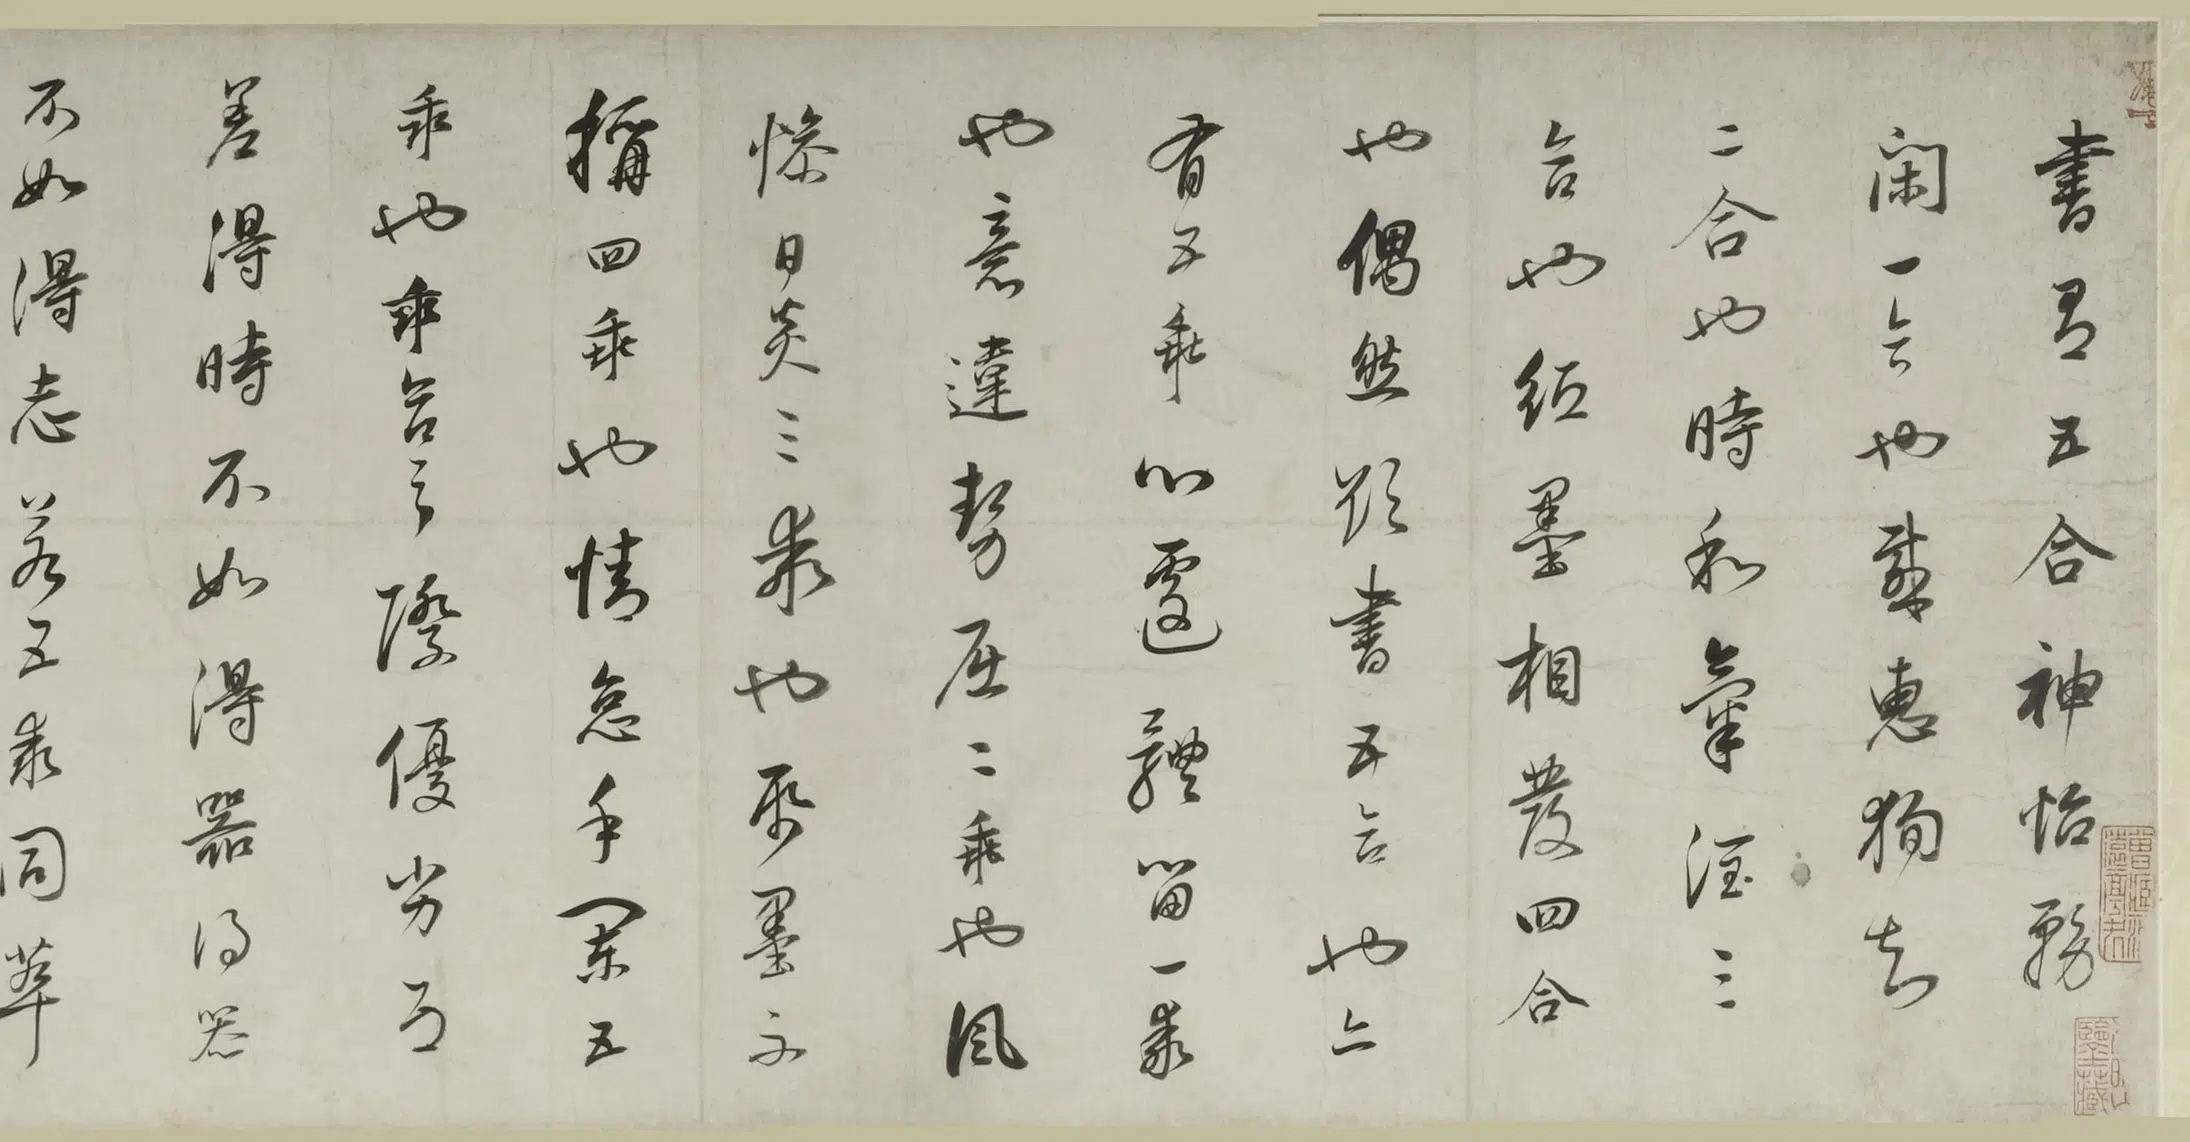 書有五合神怡務
閑一合也感惠徇知
二合也時和氣潤三
合也紙墨相發四合
也偶然欲書五合也亦
有五乖心遽體留一乖
也意違勢屈二乖也風
燥日炎三乖也紙墨不
稱四乖也情怠手闌五
乖也乖合之際優劣互
差得時不如得器得器
不如得志若五乖同萃